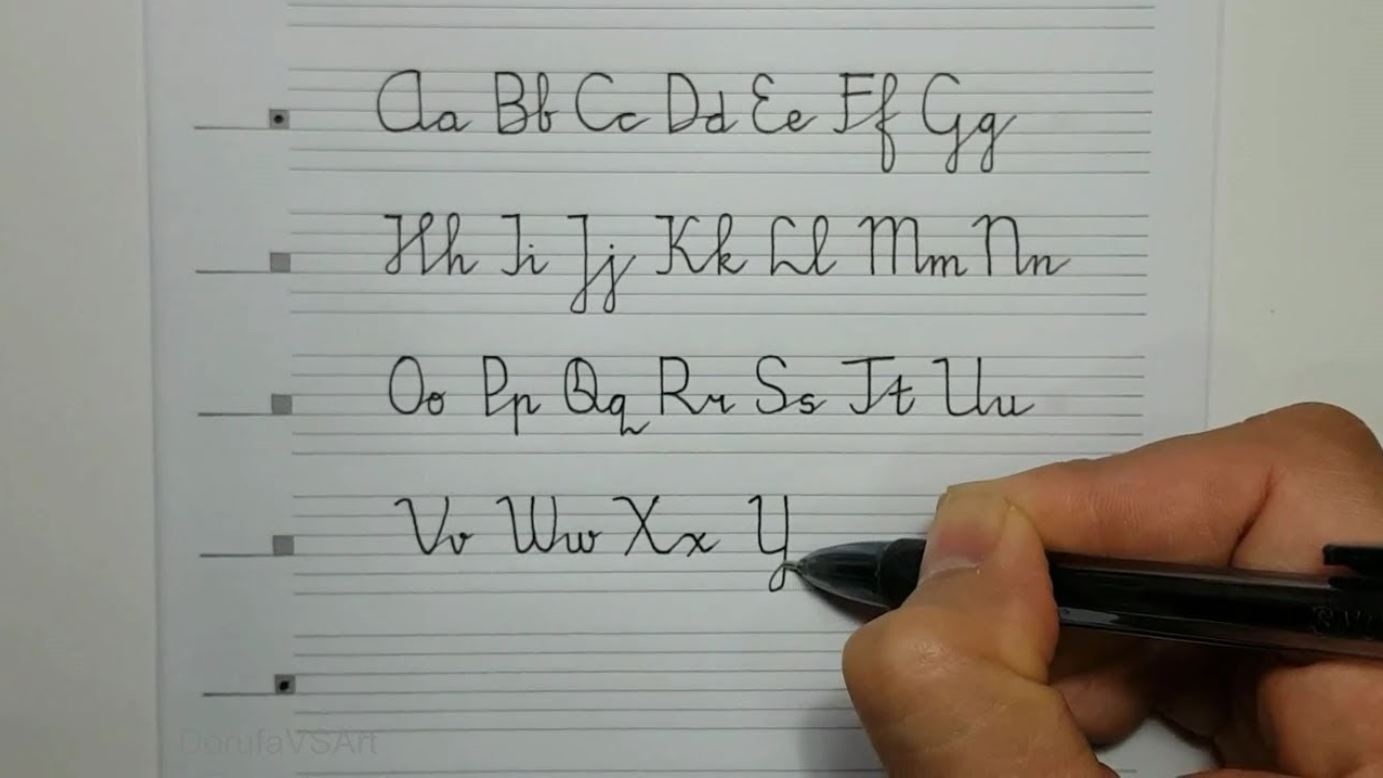 Aa Bb Cc Dd Ee Ff Gg
Hh Ii Jj Kk Ll Mm Nn
Oo Pp Qq Rr Ss Tt Uu
Vv Ww Xx Y
DorufaVSArt